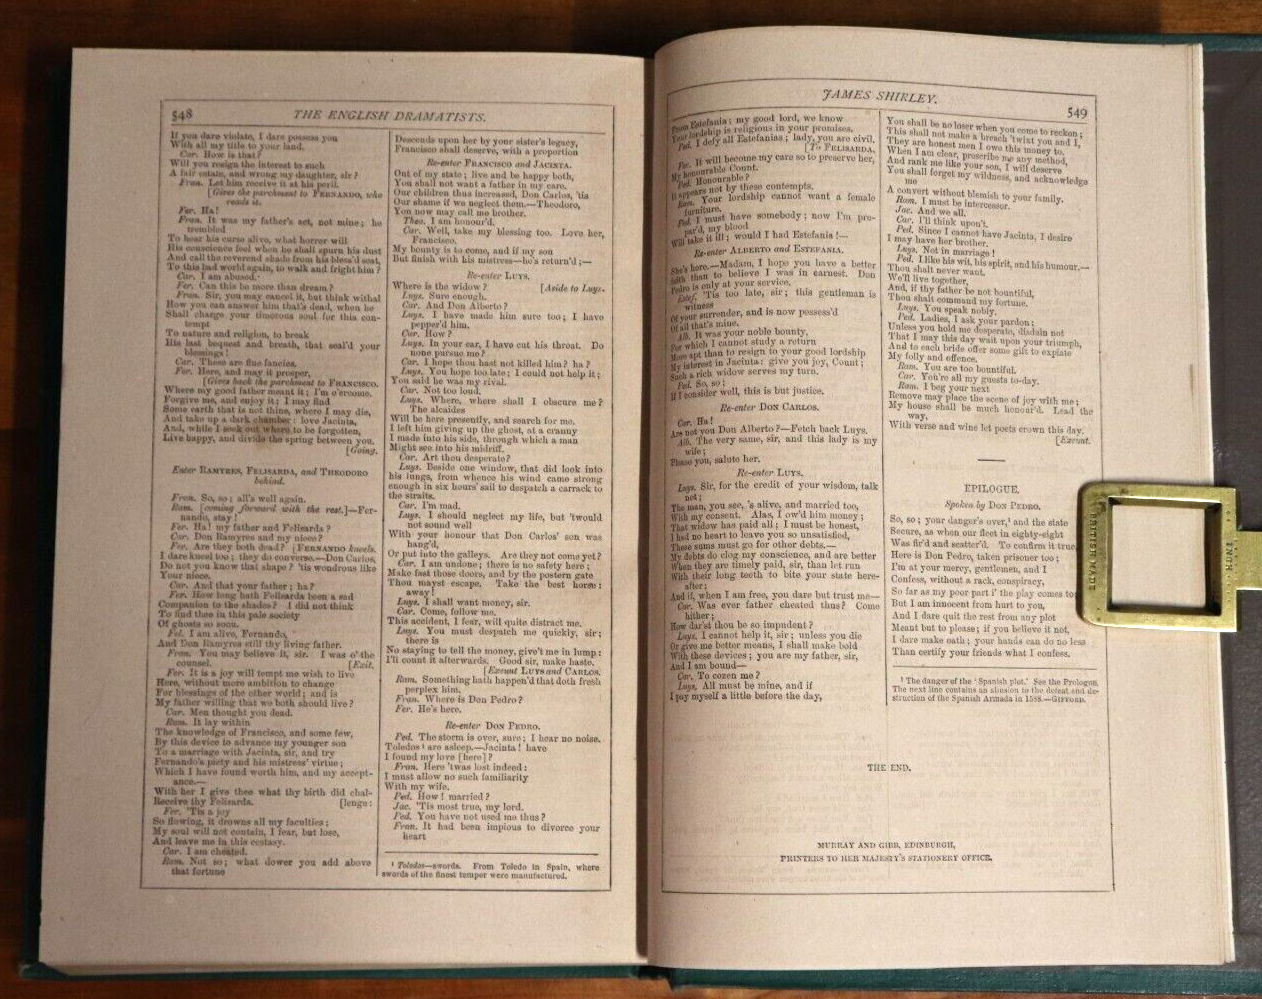 548
THE ENGLISH DRAMATISTS.
If you dare violate, I dare possess you
With all my title to your land.
Car. How is that?
Will you resign the interest to such
A fair estate, and wrong my daughter, sir?
Fran. Let him receive it at his peril.
[Gives the parchment to FERNANDO, who
reads it.
Fer. Ha!
Fran. It was my father's act, not mine; he
trembled
To hear his curse alive, what horror will
His conscience feel when he shall spurn his dust
And call the reverend shade from his bless'd seat
To this bad world again, to walk and fright him?
Car. I am abused.
Fer. Can this be more than dream?
Fran. Sir, you may cancel it, but think withal
How you can answer him that's dead, when he
Shall charge your timorous soul for this con-
tempt
To nature and religion, to break
His last bequest and breath, that seal'd your
blessings!
Car. These are fine fancies.
Fer. Here, and may it prosper,
[Gives back the parchment to FRANCISCO.
Where my good father meant it; I'm o'ercome.
Forgive me, and enjoy it; I may find
Some earth that is not thine, where I may die,
And take up a dark chamber: love Jacinta,
And, while I seek out where to be forgotten,
Live happy, and divide the spring between you.
[Going.
Enter RAMYRES, FELISARDA, and THEODORO
behind.
Fran. So, so; all's well again.
Ram. [coming forward with the rest.]—Fer-
nando, stay!
Fer. Ha! my father and Felisarda?
Car. Don Ramyres and my niece?
Fer. Are they both dead? [FERNANDO kneels.
I dare kneel too; they do converse.—Don Carlos,
Do not you know that shape? 'tis wondrous like
Your niece.
Car. And that your father; ha?
Fer. How long hath Felisarda been a sad
Companion to the shades? I did not think
To find thee in this pale society
Of ghosts so soon.
Fel. I am alive, Fernando,
And Don Ramyres still thy living father.
Fran. You may believe it, sir. I was o' the
counsel. [Exit.
Fer. It is a joy will tempt me wish to live
Here, without more ambition to change
For blessings of the other world; and is
My father willing that we both should live?
Car. Men thought you dead.
Ram. It lay within
The knowledge of Francisco, and some few,
By this device to advance my younger son
To a marriage with Jacinta, sir, and try
Fernando's piety and his mistress' virtue;
Which I have found worth him, and my accept-
ance.—
With her I give thee what thy birth did chal-
Receive thy Felisarda. [lenge:
Fer. 'Tis a joy
So flowing, it drowns all my faculties;
My soul will not contain, I fear, but lose,
And leave me in this ecstasy.
Car. I am cheated.
Ram. Not so; what dower you add above
that fortune
Descends upon her by your sister's legacy,
Francisco shall deserve, with a proportion
Re-enter FRANCISCO and JACINTA.
Out of my state; live and be happy both,
You shall not want a father in my care.
Our children thus increased, Don Carlos, 'tis
Our shame if we neglect them.—Theodoro,
You now may call me brother.
Theo. I am honour'd.
Car. Well, take my blessing too. Love her,
Francisco.
My bounty is to come, and if my son
But finish with his mistress—he's return'd;—
Re-enter LUYS.
Where is the widow? [Aside to Luys.
Luys. Sure enough.
Car. And Don Alberto?
Luys. I have made him sure too; I have
pepper'd him.
Car. How?
Luys. In your ear, I have cut his throat. Do
none pursue me?
Car. I hope thou hast not killed him? ha?
Luys. You hope too late; I could not help it;
You said he was my rival.
Car. Not too loud.
Luys. Where, where shall I obscure me?
The alcaides
Will be here presently, and search for me,
I left him giving up the ghost, at a cranny
I made into his side, through which a man
Might see into his midriff.
Car. Art thou desperate?
Luys. Beside one window, that did look into
his lungs, from whence his wind came strong
enough in six hours' sail to despatch a carrack to
the straits.
Car. I'm mad.
Luys. I should neglect my life, but 'twould
not sound well
With your honour that Don Carlos' son was
hang'd,
Or put into the galleys. Are they not come yet?
Car. I am undone; there is no safety here;
Make fast those doors, and by the postern gate
Thou mayst escape. Take the best horse:
away!
Luys. I shall want money, sir.
Car. Come, follow me.
This accident, I fear, will quite distract me.
Luys. You must despatch me quickly, sir;
there is
No staying to tell the money, give't me in lump:
I'll count it afterwards. Good sir, make haste.
[Exeunt LUYS and CARLOS.
Ram. Something hath happen'd that doth fresh
perplex him.
Fran. Where is Don Pedro?
Fer. He's here.
Re-enter DON PEDRO.
Ped. The storm is over, sure; I hear no noise.
Toledos¹ are asleep.—Jacinta! have
I found my love [here]?
Fran. Here 'twas lost indeed:
I must allow no such familiarity
With my wife.
Ped. How! married?
Jac. 'Tis most true, my lord.
Ped. You have not used me thus?
Fran. It had been impious to divorce your
heart
¹ Toledos—swords. From Toledo in Spain, where
swords of the finest temper were manufactured.
JAMES SHIRLEY.
549
From Estefania; my good lord, we know
Your lordship is religious in your promises.
Ped. I defy all Estefanias; lady, you are civil.
[To FELISARDA,
Fer. It will become my care so to preserve her,
My honourable Count.
Ped. Honourable?
It appears not by these contempts.
Ram. Your lordship cannot want a female
furniture.
Ped. I must have somebody; now I'm pre-
par'd, my blood
Will take it ill; would I had Estefania!—
Re-enter ALBERTO and ESTEFANIA.
She's here.—Madam, I hope you have a better
faith than to believe I was in earnest. Don
Pedro is only at your service.
Estef. 'Tis too late, sir; this gentleman is
witness
Of your surrender, and is now possess'd
Of all that's mine.
Alb. It was your noble bounty,
For which I cannot study a return
More apt than to resign to your good lordship
My interest in Jacinta: give you joy, Count;
Such a rich widow serves my turn.
Ped. So, so;
If I consider well, this is but justice.
Re-enter DON CARLOS.
Car. Ha!
Are not you Don Alberto?—Fetch back Luys.
Alb. The very same, sir, and this lady is my
wife;
Please you, salute her.
Re-enter LUYS.
Luys. Sir, for the credit of your wisdom, talk
not;
The man, you see, 's alive, and married too,
With my consent. Alas, I ow'd him money;
That widow has paid all; I must be honest,
I had no heart to leave you so unsatisfied,
These sums must go for other debts.—
My debts do clog my conscience, and are better
When they are timely paid, sir, than let run
With their long teeth to bite your state here-
after;
And if, when I am free, you dare but trust me—
Car. Was ever father cheated thus? Come
hither;
How dar'st thou be so impudent?
Luys. I cannot help it, sir; unless you die
Or give me better means, I shall make bold
With these devices; you are my father, sir,
And I am bound—
Car. To cozen me?
Luys. All must be mine, and if
I pay myself a little before the day,
You shall be no loser when you come to reckon;
This shall not make a breach 'twixt you and I,
They are honest men I owe this money to.
When I am clear, prescribe me any method,
And rank me like your son, I will deserve
You shall forget my wildness, and acknowledge
me
A convert without blemish to your family.
Ram. I must be intercessor.
Jac. And we all.
Car. I'll think upon't.
Ped. Since I cannot have Jacinta, I desire
I may have her brother.
Luys. Not in marriage!
Ped. I like his wit, his spirit, and his humour,—
Thou shalt never want,
We'll live together,
And, if thy father be not bountiful,
Thou shalt command my fortune.
Luys. You speak nobly.
Ped. Ladies, I ask your pardon;
Unless you hold me desperate, disdain not
That I may this day wait upon your triumph,
And to each bride offer some gift to expiate
My folly and offence.
Ram. You are too bountiful.
Car. You're all my guests to-day.
Ram. I beg your next
Remove may place the scene of joy with me;
My house shall be much honour'd. Lead the
way,
With verse and wine let poets crown this day.
[Exeunt.
EPILOGUE.
Spoken by DON PEDRO.
So, so; your danger's over,¹ and the state
Secure, as when our fleet in eighty-eight
Was fir'd and scatter'd. To confirm it true,
Here is Don Pedro, taken prisoner too;
I'm at your mercy, gentlemen, and I
Confess, without a rack, conspiracy,
So far as my poor part i' the play comes to;
But I am innocent from hurt to you,
And I dare quit the rest from any plot
Meant but to please; if you believe it not,
I dare make oath; your hands can do no less
Than certify your friends what I confess.
¹ The danger of the 'Spanish plot.' See the Prologue.
The next line contains an allusion to the defeat and de-
struction of the Spanish Armada in 1588.—GIFFORD.
THE END.
MURRAY AND GIBB, EDINBURGH,
PRINTERS TO HER MAJESTY'S STATIONERY OFFICE.
BRITISH MADE